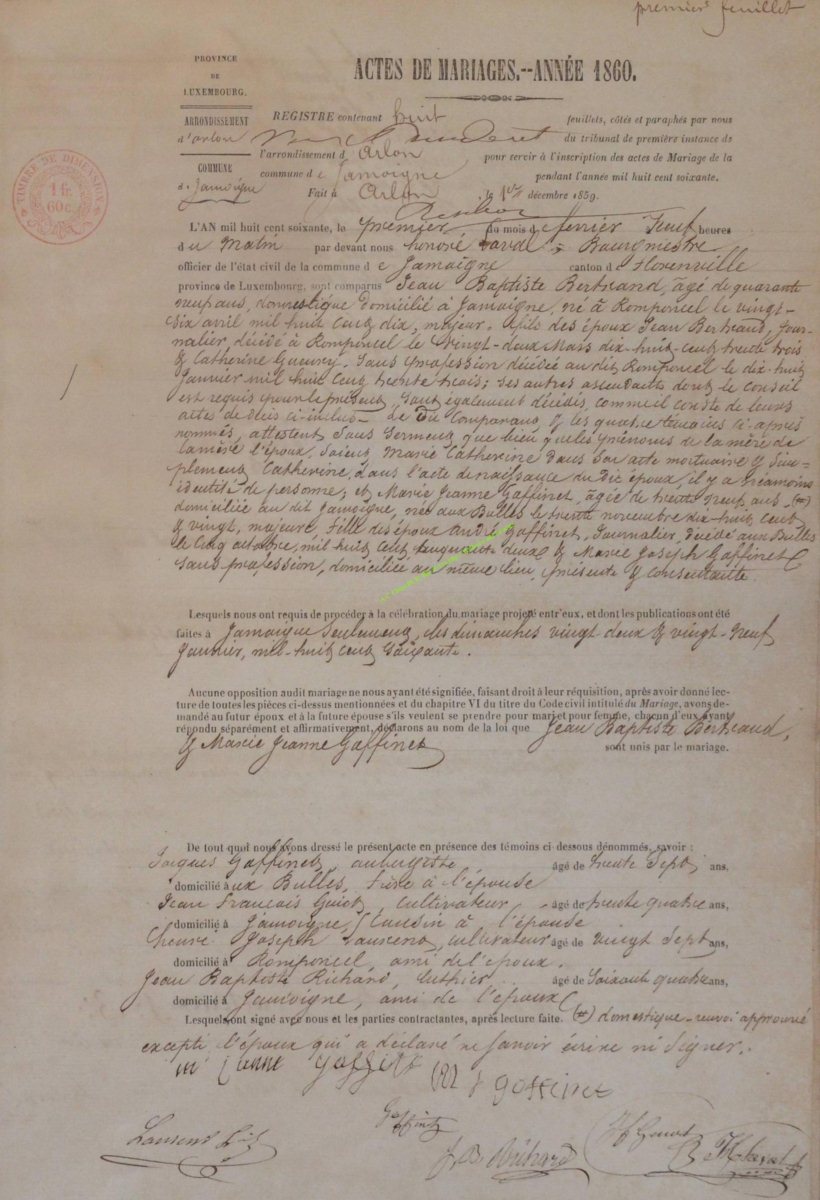 premier feuillet
PROVINCE
DE
LUXEMBOURG.
ARRONDISSEMENT
d'arlon
COMMUNE
de Jamoigne
TIMBRE DE DIMENSION
1 fr.
60 c.
ACTES DE MARIAGES.--ANNÉE 1860.
REGISTRE contenant huit feuillets, côtés et paraphés par nous
du tribunal de première instance de
l'arrondissement d'Arlon pour servir à l'inscription des actes de Mariage de la
commune de Jamoigne pendant l'année mil huit cent soixante.
Fait à Arlon le 1er décembre 1859.
L'AN mil huit cent soixante, le premier du mois de février neuf heures
du matin par devant nous honoré Bourgmestre
officier de l'état civil de la commune de Jamoigne canton de Florenville
province de Luxembourg, sont comparus Jean Baptiste Bertrand, âgé de quarante
neuf ans, domestique domicilié à Jamoigne, né à Romponcel le vingt-
six avril mil huit cent dix, majeur, fils des époux Jean Bertrand, jour-
nalier, décédé à Romponcel le vingt-deux Mars dix-huit-cent trente trois
& Catherine sans profession décédée au dit Romponcel le dix huit
Janvier mil huit cent trente trois; ses autres ascendants dont le conseil
est requis pour le présent, sont également décédés, comme il conste de leurs
actes de décès ci-inclus. Le dit Comparant & les quatre témoins ci-après
nommés, attestent sous serment que bien que les prénoms de la mère de
l'époux, soient Marie Catherine dans son acte mortuaire & sim-
plement Catherine, dans l'acte de naissance du dit époux, il y a néanmoins
identité de personne; et Marie Jeanne Gaffinet, âgée de trente neuf ans (#)
domiciliée au dit Jamoigne, née aux Bulles le trente novembre dix-huit cent
& vingt, majeure fille des époux André Gaffinet, Journalier, décédé aux Bulles
le cinq octobre, mil huit cent cinquante deux & Marie Joseph Gaffinet
sans profession, domiciliée au même lieu, présente & consentante.
Lesquels nous ont requis de procéder à la célébration du mariage projeté entr'eux, et dont les publications ont été
faites à Jamoigne seulement, les dimanches vingt deux & vingt-neuf
Janvier, mil-huit cent soixante.
Aucune opposition audit mariage ne nous ayant été signifiée, faisant droit à leur réquisition, après avoir donné lec-
ture de toutes les pièces ci-dessus mentionnées et du chapitre VI du titre du Code civil intitulé du Mariage, avons de-
mandé au futur époux et à la future épouse s'ils veulent se prendre pour mari et pour femme, chacun d'eux ayant
répondu séparément et affirmativement, déclarons au nom de la loi que Jean Baptiste Bertrand,
& Marie Jeanne Gaffinet sont unis par le mariage.
De tout quoi nous avons dressé le présent acte en présence des témoins ci-dessous dénommés, savoir :
Jacques Gaffinet, aubergiste âgé de trente sept ans,
domicilié aux Bulles, frère à l'épouse
Jean François Guiot, cultivateur âgé de trente quatre ans,
domicilié à Jamoigne, Cousin à l'épouse
Joseph Laurent, cultivateur âgé de vingt sept ans,
domicilié à Romponcel, ami de l'époux.
Jean Baptiste Richard, luthier âgé de soixante quatre ans,
domicilié à Jamoigne, ami de l'époux
Lesquels ont signé avec nous et les parties contractantes, après lecture faite. (#) domestique - renvoi approuvé
excepté l'époux qui a déclaré ne savoir écrire ni signer.
m j goffinet
Laurent
J B Richard